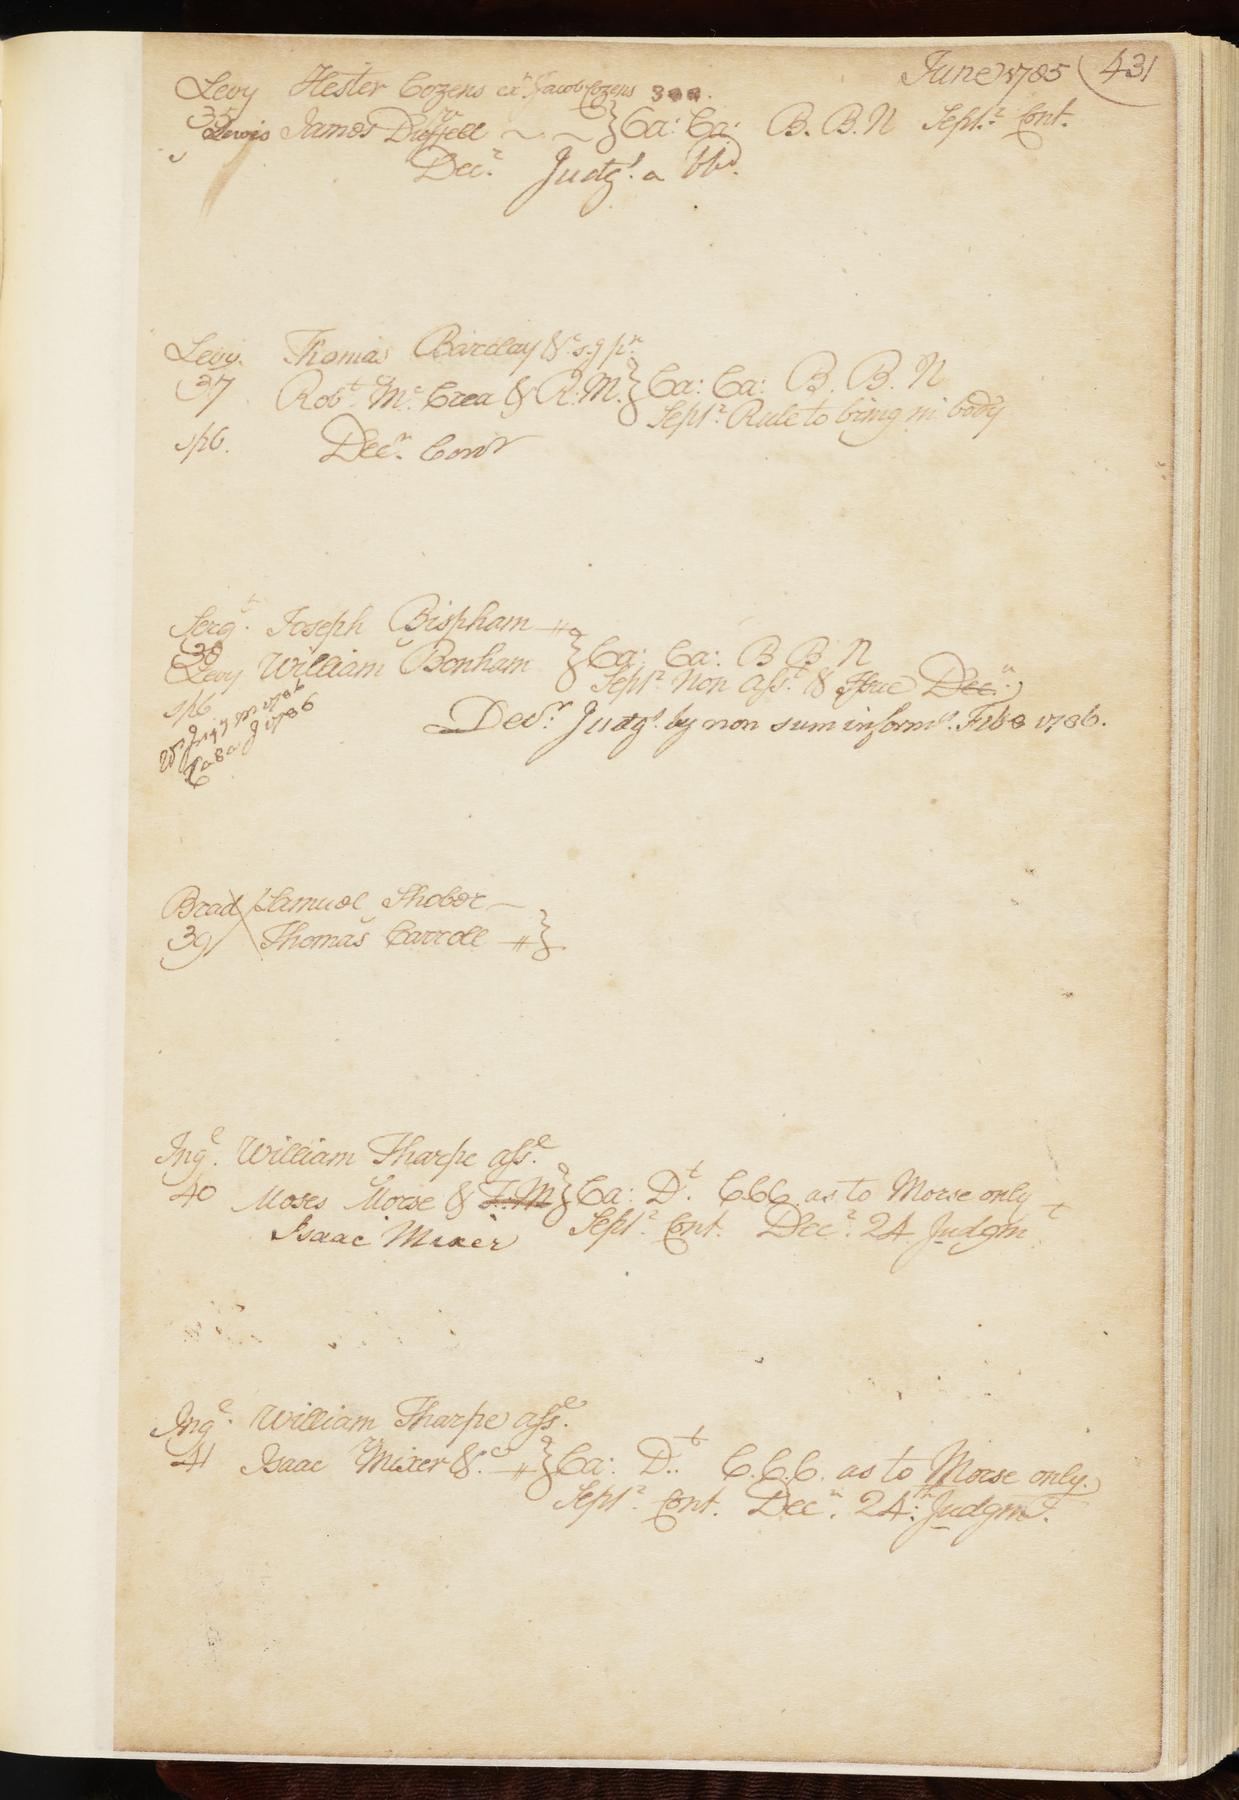 June 1785 (431
Levy Hester Cozens exr Jacob Cozens
35
Lewis James Duffell } Ca: Ca: B. B. N Septr Cont.
Decr Judgt. a bbd.
Levy. Thomas Barclay &c s.g pr.
37 Robt. Mc. Crea & R. M. } Ca: Ca: B. B. N
Septr Rule to bring in body
spb. Decr. Cont
Sergt. Joseph Bispham
38
Levy William Bonham } Ca: Ca: B B N
Septr Non asst & Issue Decr.
spb
Decr. Judgt. by non sum informs. Feb 1786.
Ca sa J 1786
Brad Samuel Shober
39 Thomas Carroll }
Inge. William Tharpe asse.
40 Moses Morse & I. M } Ca: Dt. CCC. as to Morse only
Isaac Mixer Septr Cont. Decr. 24 Judgmt
Inge. William Tharpe asse.
41 Isaac Mixer &c. } Ca: Dt. C.C.C. as to Morse only.
Septr. Cont. Decr. 24: Judgmt.